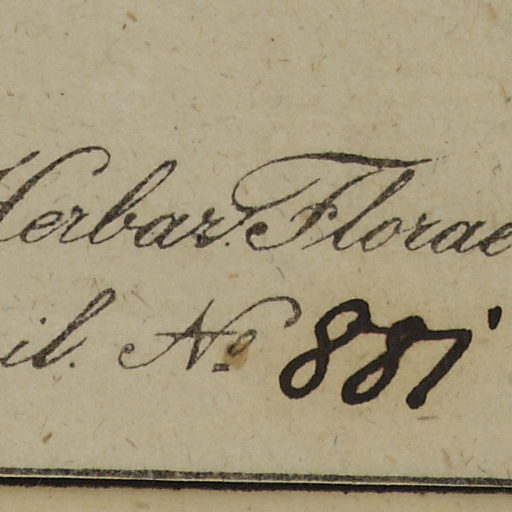 Herbar. Florae
il. No 881